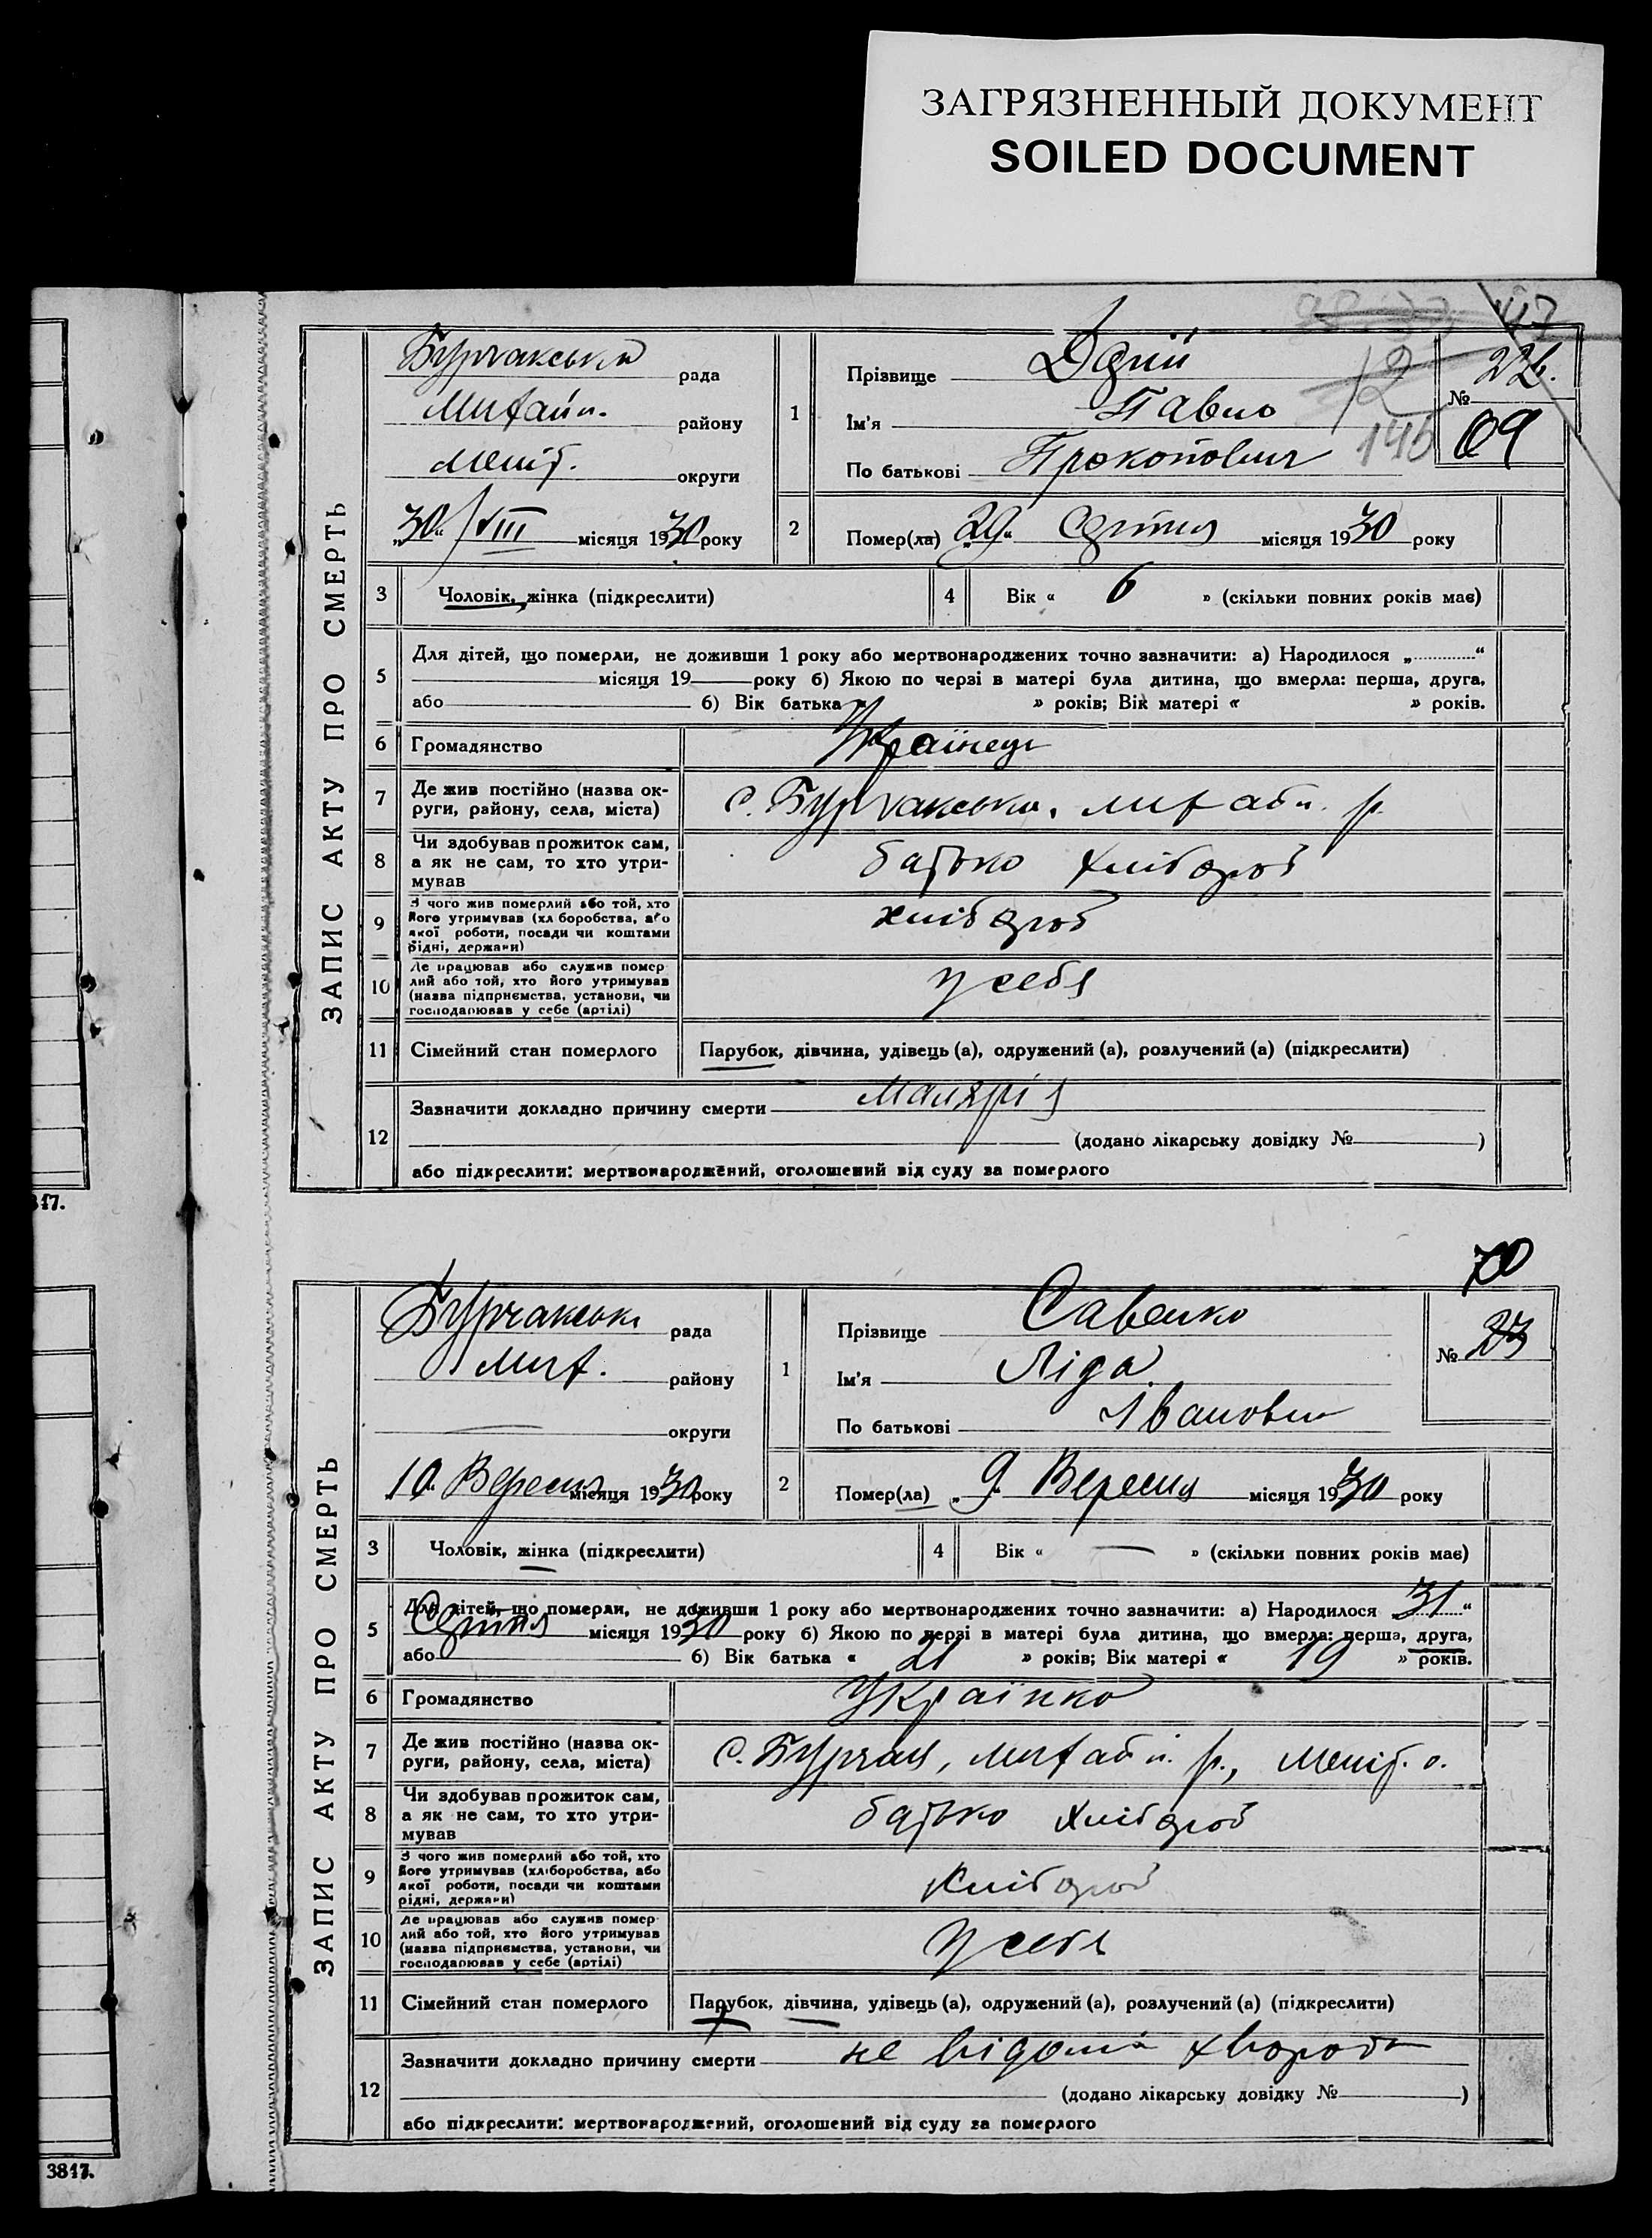 ЗАГРЯЗНЕННЫЙ ДОКУМЕНТ
SOILED DOCUMENT
ЗАПИС АКТУ ПРО СМЕРТЬ
Бурчакська рада
Михайл. району
Меліт. округи
„30“ VIII місяця 1930 року
1
Прізвище
Ім'я Павло
По батькові Прокопович
№ 22
69
145
2 Помер(ла) „29“ Серпня місяця 1930 року
3 Чоловік, жінка (підкреслити)
4 Вік « 6 » (скільки повних років має)
5 Для дітей, що померли, не доживши 1 року або мертвонароджених точно зазначити: а) Народилося „ “
місяця 19 року б) Якою по черзі в матері була дитина, що вмерла: перша, друга,
або б) Вік батька « » років; Вік матері « » років.
6 Громадянство Українець
7 Де жив постійно (назва ок-
руги, району, села, міста) с. Бурчакська, михайл. р.
8 Чи здобував прожиток сам,
а як не сам, то хто утри-
мував батько хлібороб
9 З чого жив померлий або той, хто
його утримував (хліборобства, або
якої роботи, посади чи коштами
рідні, держави) хлібороб
10 Де працював або служив помер-
лий або той, хто його утримував
(назва підприємства, установи, чи
господарював у себе (артілі) у себя
11 Сімейний стан померлого Парубок, дівчина, удівець (а), одружений (а), розлучений (а) (підкреслити)
12 Зазначити докладно причину смерти Малярія
(додано лікарську довідку № )
або підкреслити: мертвонароджений, оголошений від суду за померлого
317.
70
ЗАПИС АКТУ ПРО СМЕРТЬ
Бурчакська рада
Мих. району
— округи
„10“ Вересня місяця 1930 року
1
Прізвище Савенко
Ім'я Ліда
По батькові Івановн
№ 23
2 Помер(ла) „9“ Вересня місяця 1930 року
3 Чоловік, жінка (підкреслити)
4 Вік « — » (скільки повних років має)
5 Для дітей, що померли, не доживши 1 року або мертвонароджених точно зазначити: а) Народилося „31“
Серпня місяця 1930 року б) Якою по черзі в матері була дитина, що вмерла: перша, друга,
або б) Вік батька « 21 » років; Вік матері « 19 » років.
6 Громадянство Українка
7 Де жив постійно (назва ок-
руги, району, села, міста) с. Бурчак, михайл. р., Меліт. о.
8 Чи здобував прожиток сам,
а як не сам, то хто утри-
мував батько хлібороб
9 З чого жив померлий або той, хто
його утримував (хліборобства, або
якої роботи, посади чи коштами
рідні, держави) хлібороб
10 Де працював або служив помер-
лий або той, хто його утримував
(назва підприємства, установи, чи
господарював у себе (артілі) у себя
11 Сімейний стан померлого Парубок, дівчина, удівець (а), одружений (а), розлучений (а) (підкреслити)
12 Зазначити докладно причину смерти не відома хвороба
(додано лікарську довідку № )
або підкреслити: мертвонароджений, оголошений від суду за померлого
3817.